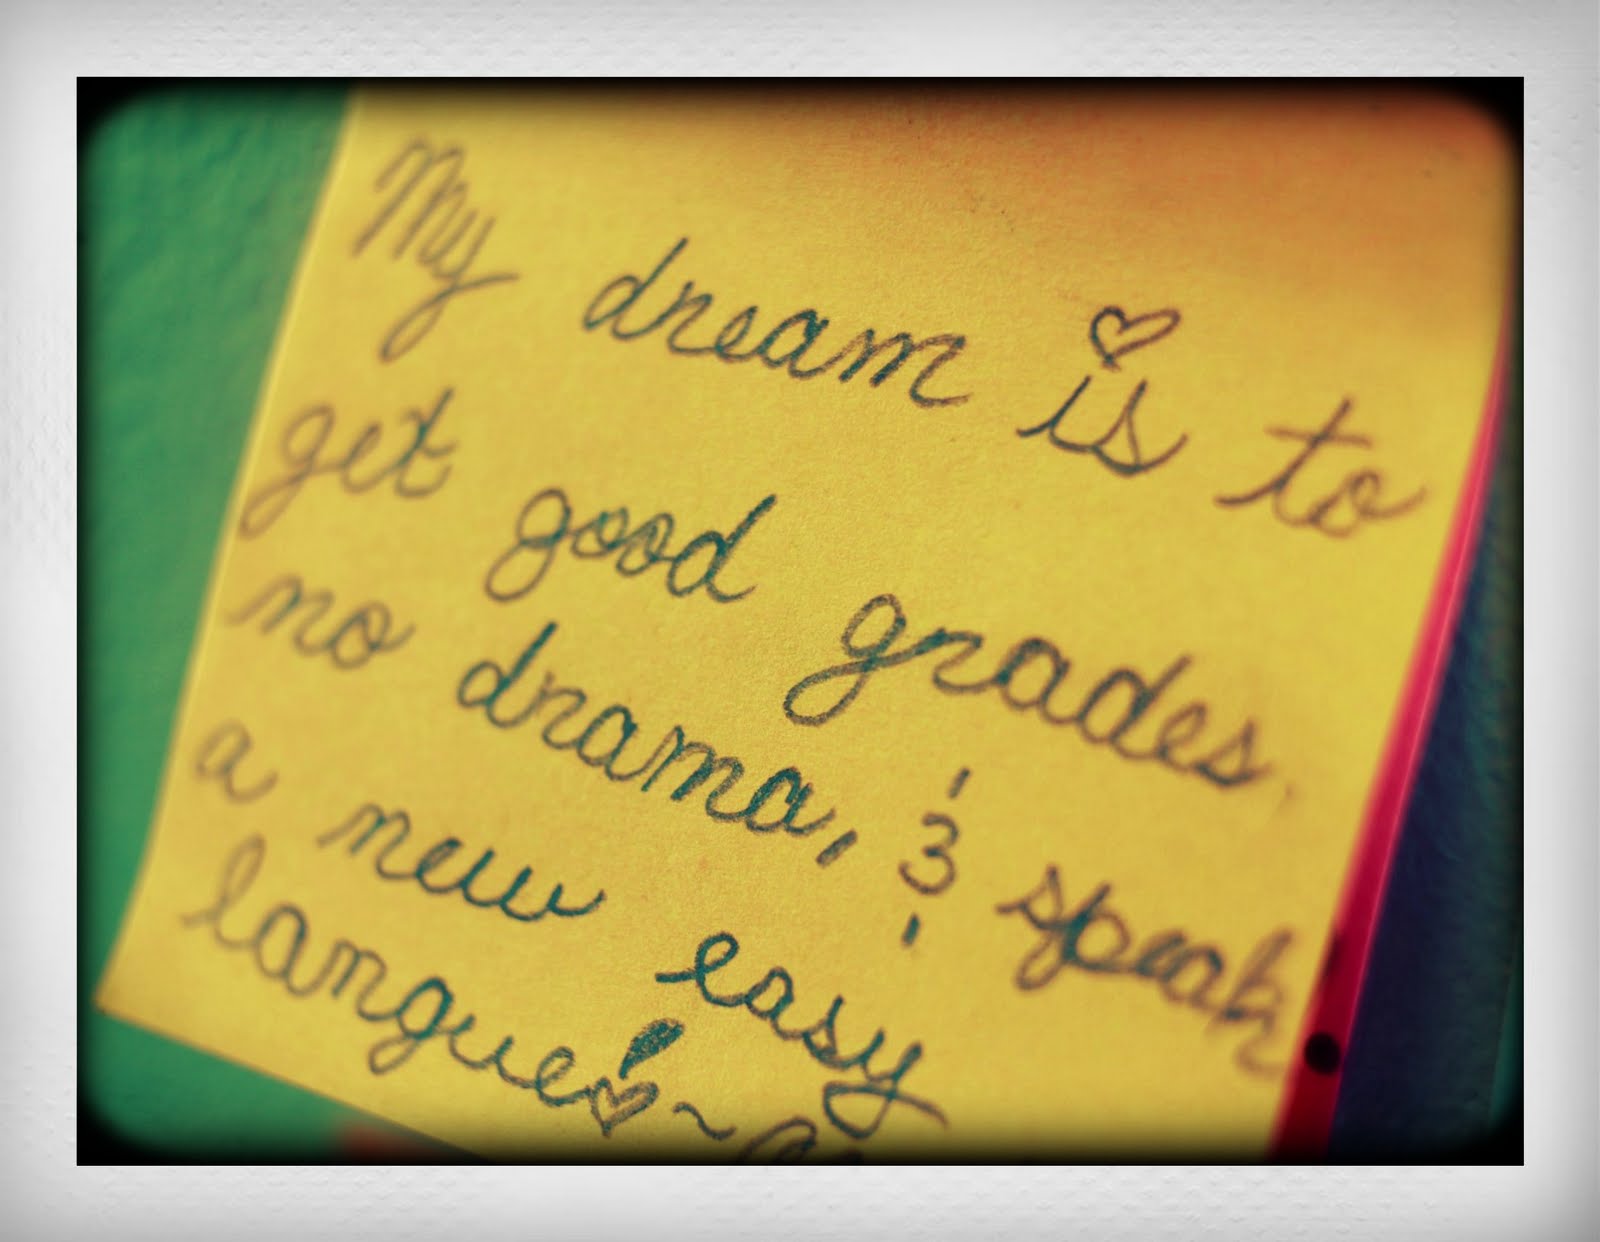 My dream is to
get good grades.
no drama, & speak
a new easy
langue! ~